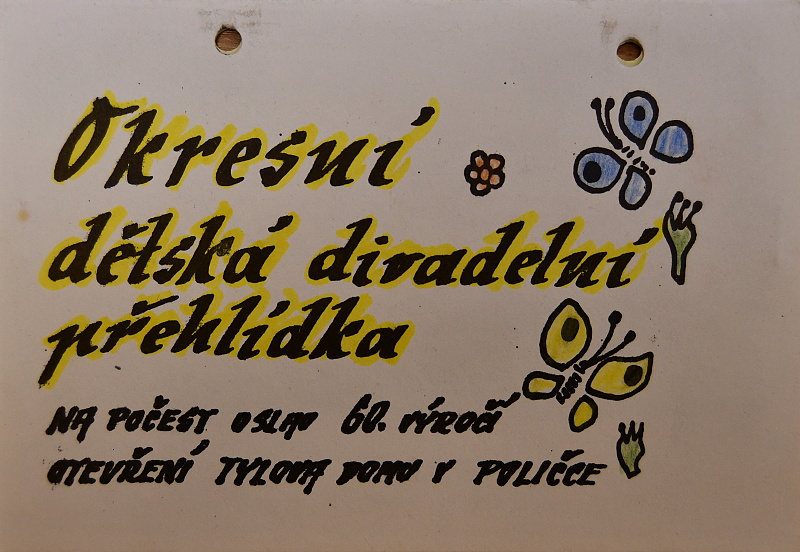 Okresní
dětská divadelní
přehlídka
NA POČEST OSLAV 60. VÝROČÍ
OTEVŘENÍ TYLOVA DOMU V POLIČCE